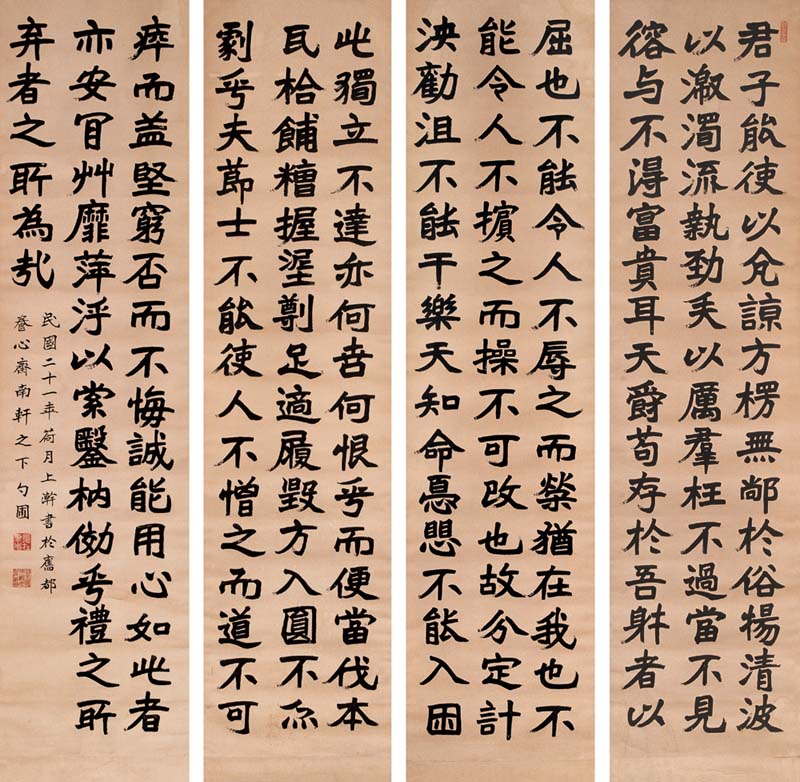 君子能使以兊諒方楞無䣊於俗楊清波
以激濁流執勁矢以厲羣枉不過當不見
容与不得富貴耳天爵苟存於吾躰者以
屈也不能令人不辱之而榮猶在我也不
能令人不擯之而操不可改也故分定計
決勸沮不能干樂天知命憂愳不能入困
此獨立不達亦何苦何恨乎而便當伐本
瓦枱餔糟握埿剸足適履毀方入圓不亦
劇乎夫節士不能使人不憎之而道不可
瘁而益堅窮否而不悔誠能用心如此者
亦安肎艸靡萍浮以索鑿枘効乎禮之所
弃者之所為哉
民國二十一年荷月上澣書於舊都
養心齋南軒之下勺圃